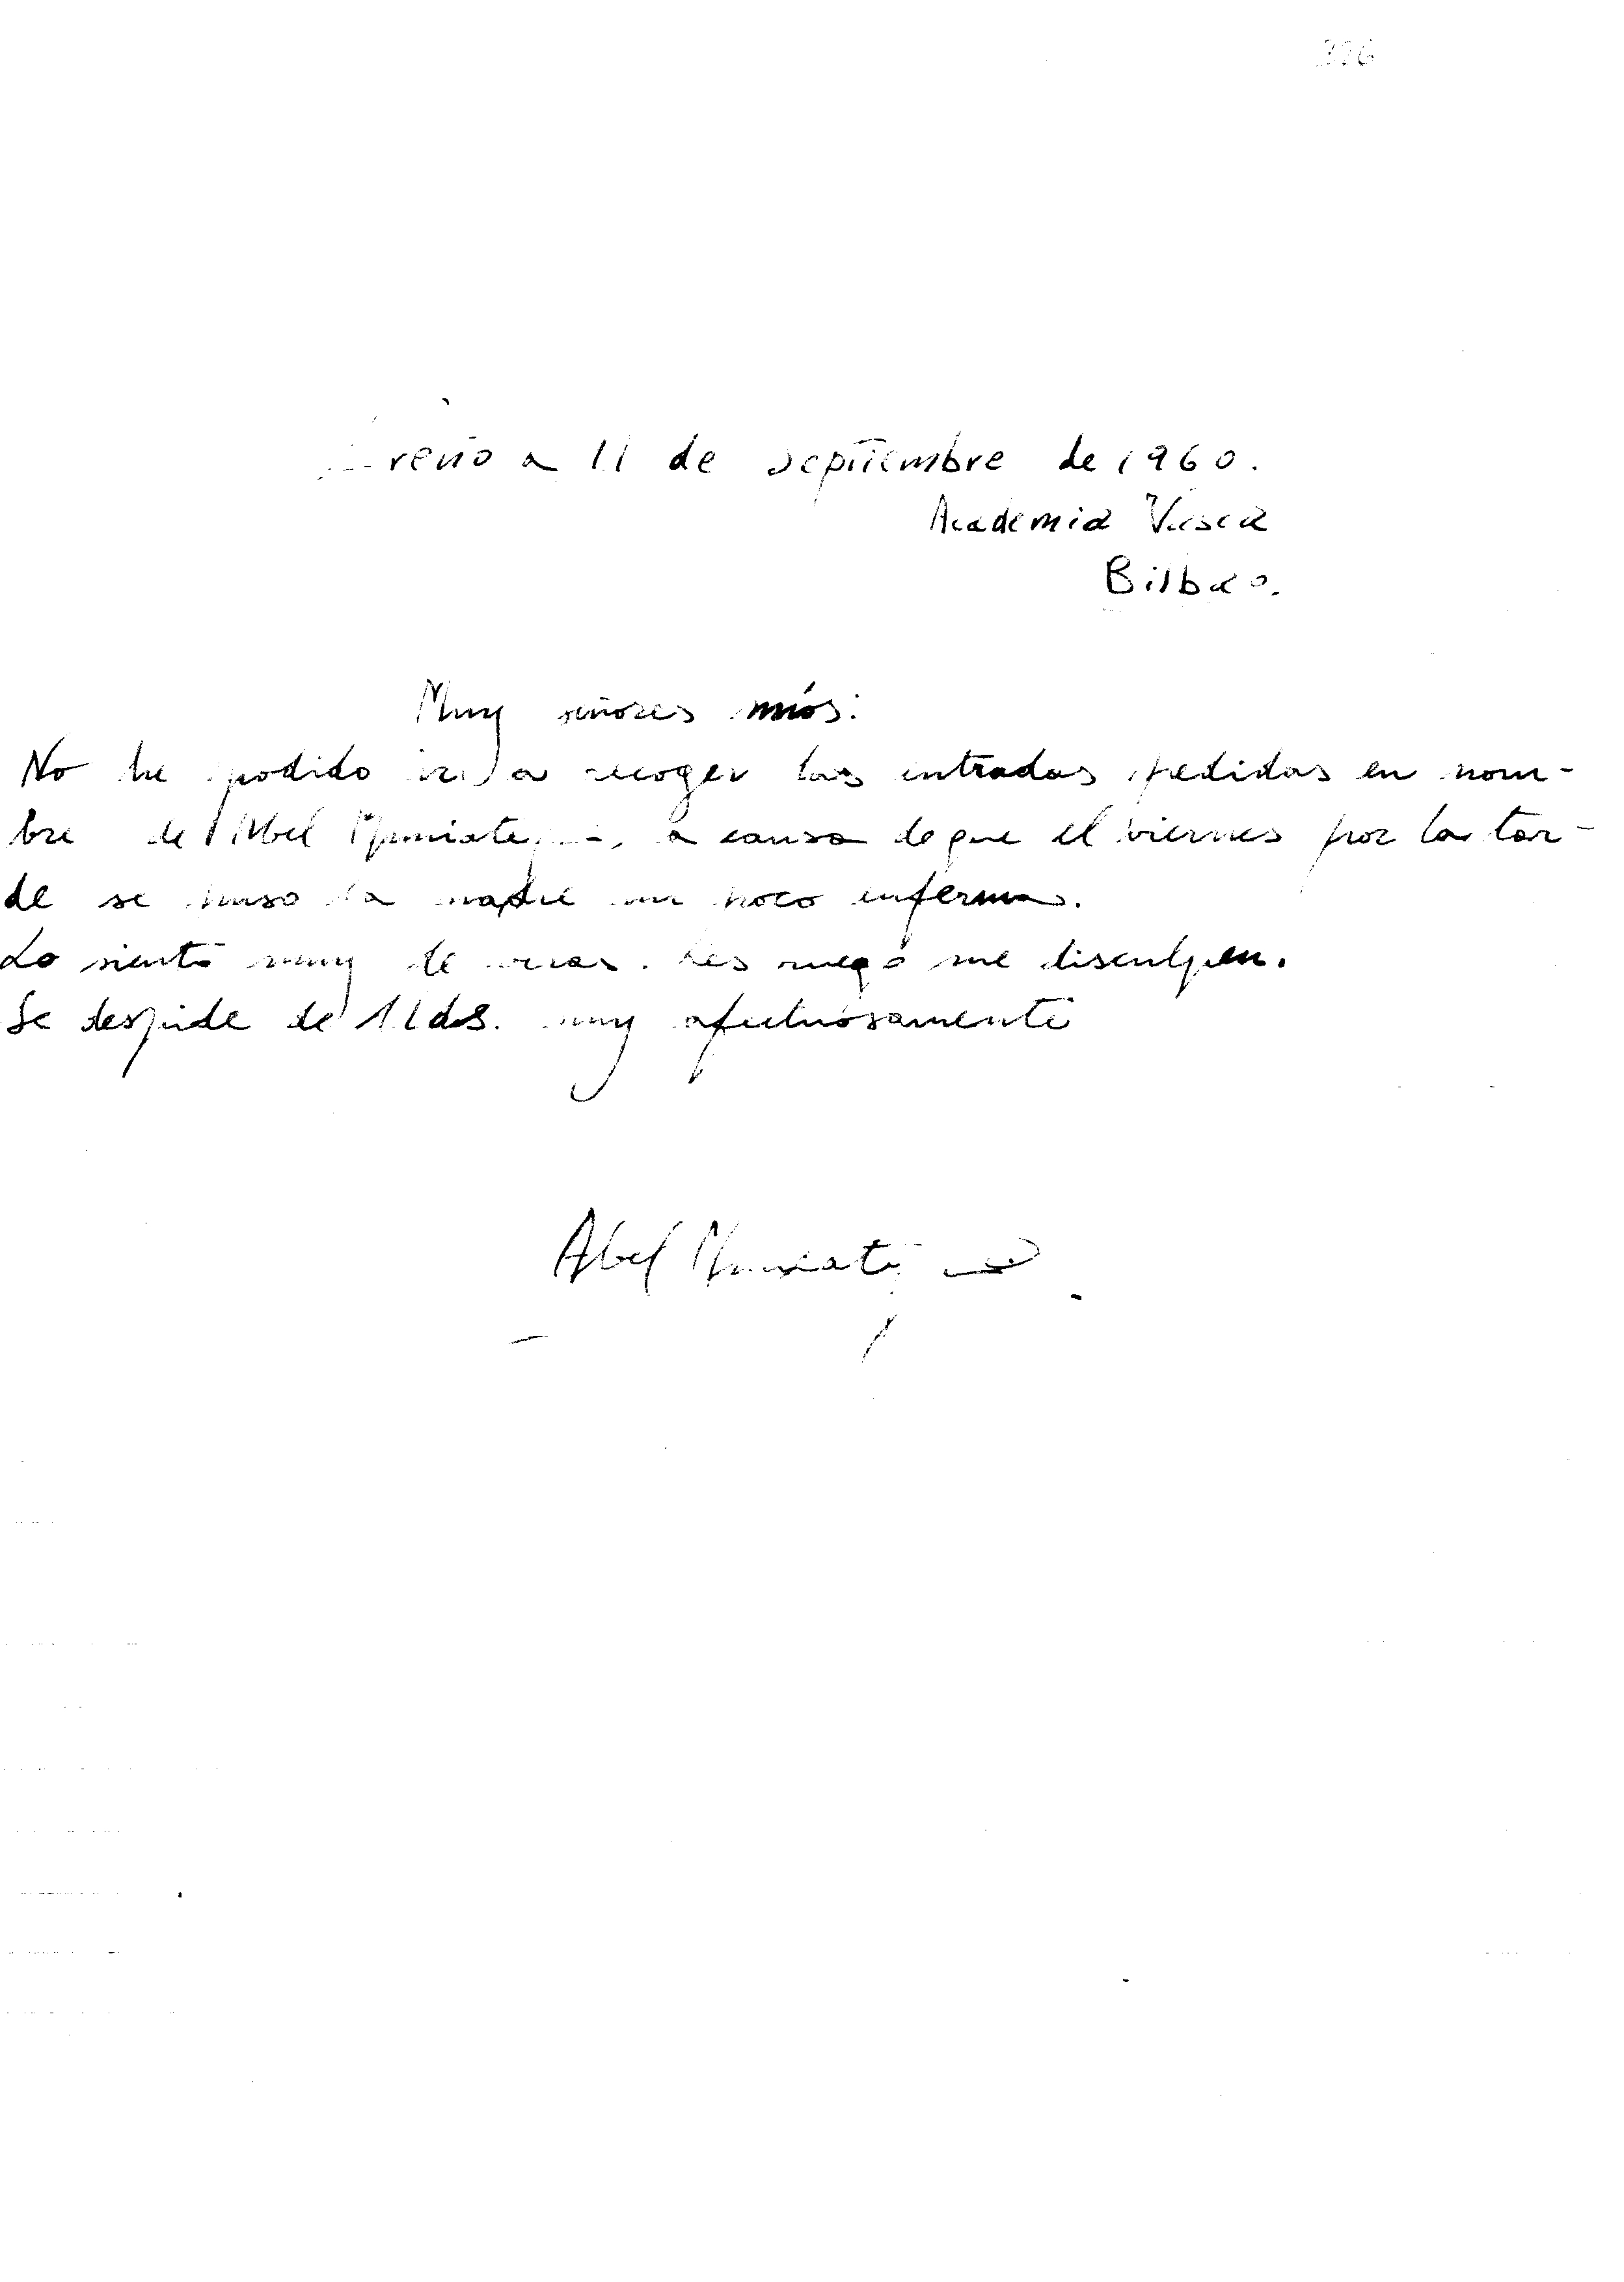 326
a 11 de septiembre de 1960.
Academia Vasca
Bilbao.
Muy señores míos:
No he podido ir a recoger las entradas pedidas en nom-
bre de Abel Muniategui, a causa de que el viernes por la tar-
de se puso la madre un poco enferma.
Lo siento muy de veras. Les ruego me disculpen.
Se despide de Uds. muy afectuosamente
Abel Muniategui